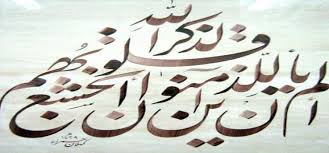 الم يأن للذين آمنوا ان تخشع
قلوبهم
لذكر الله